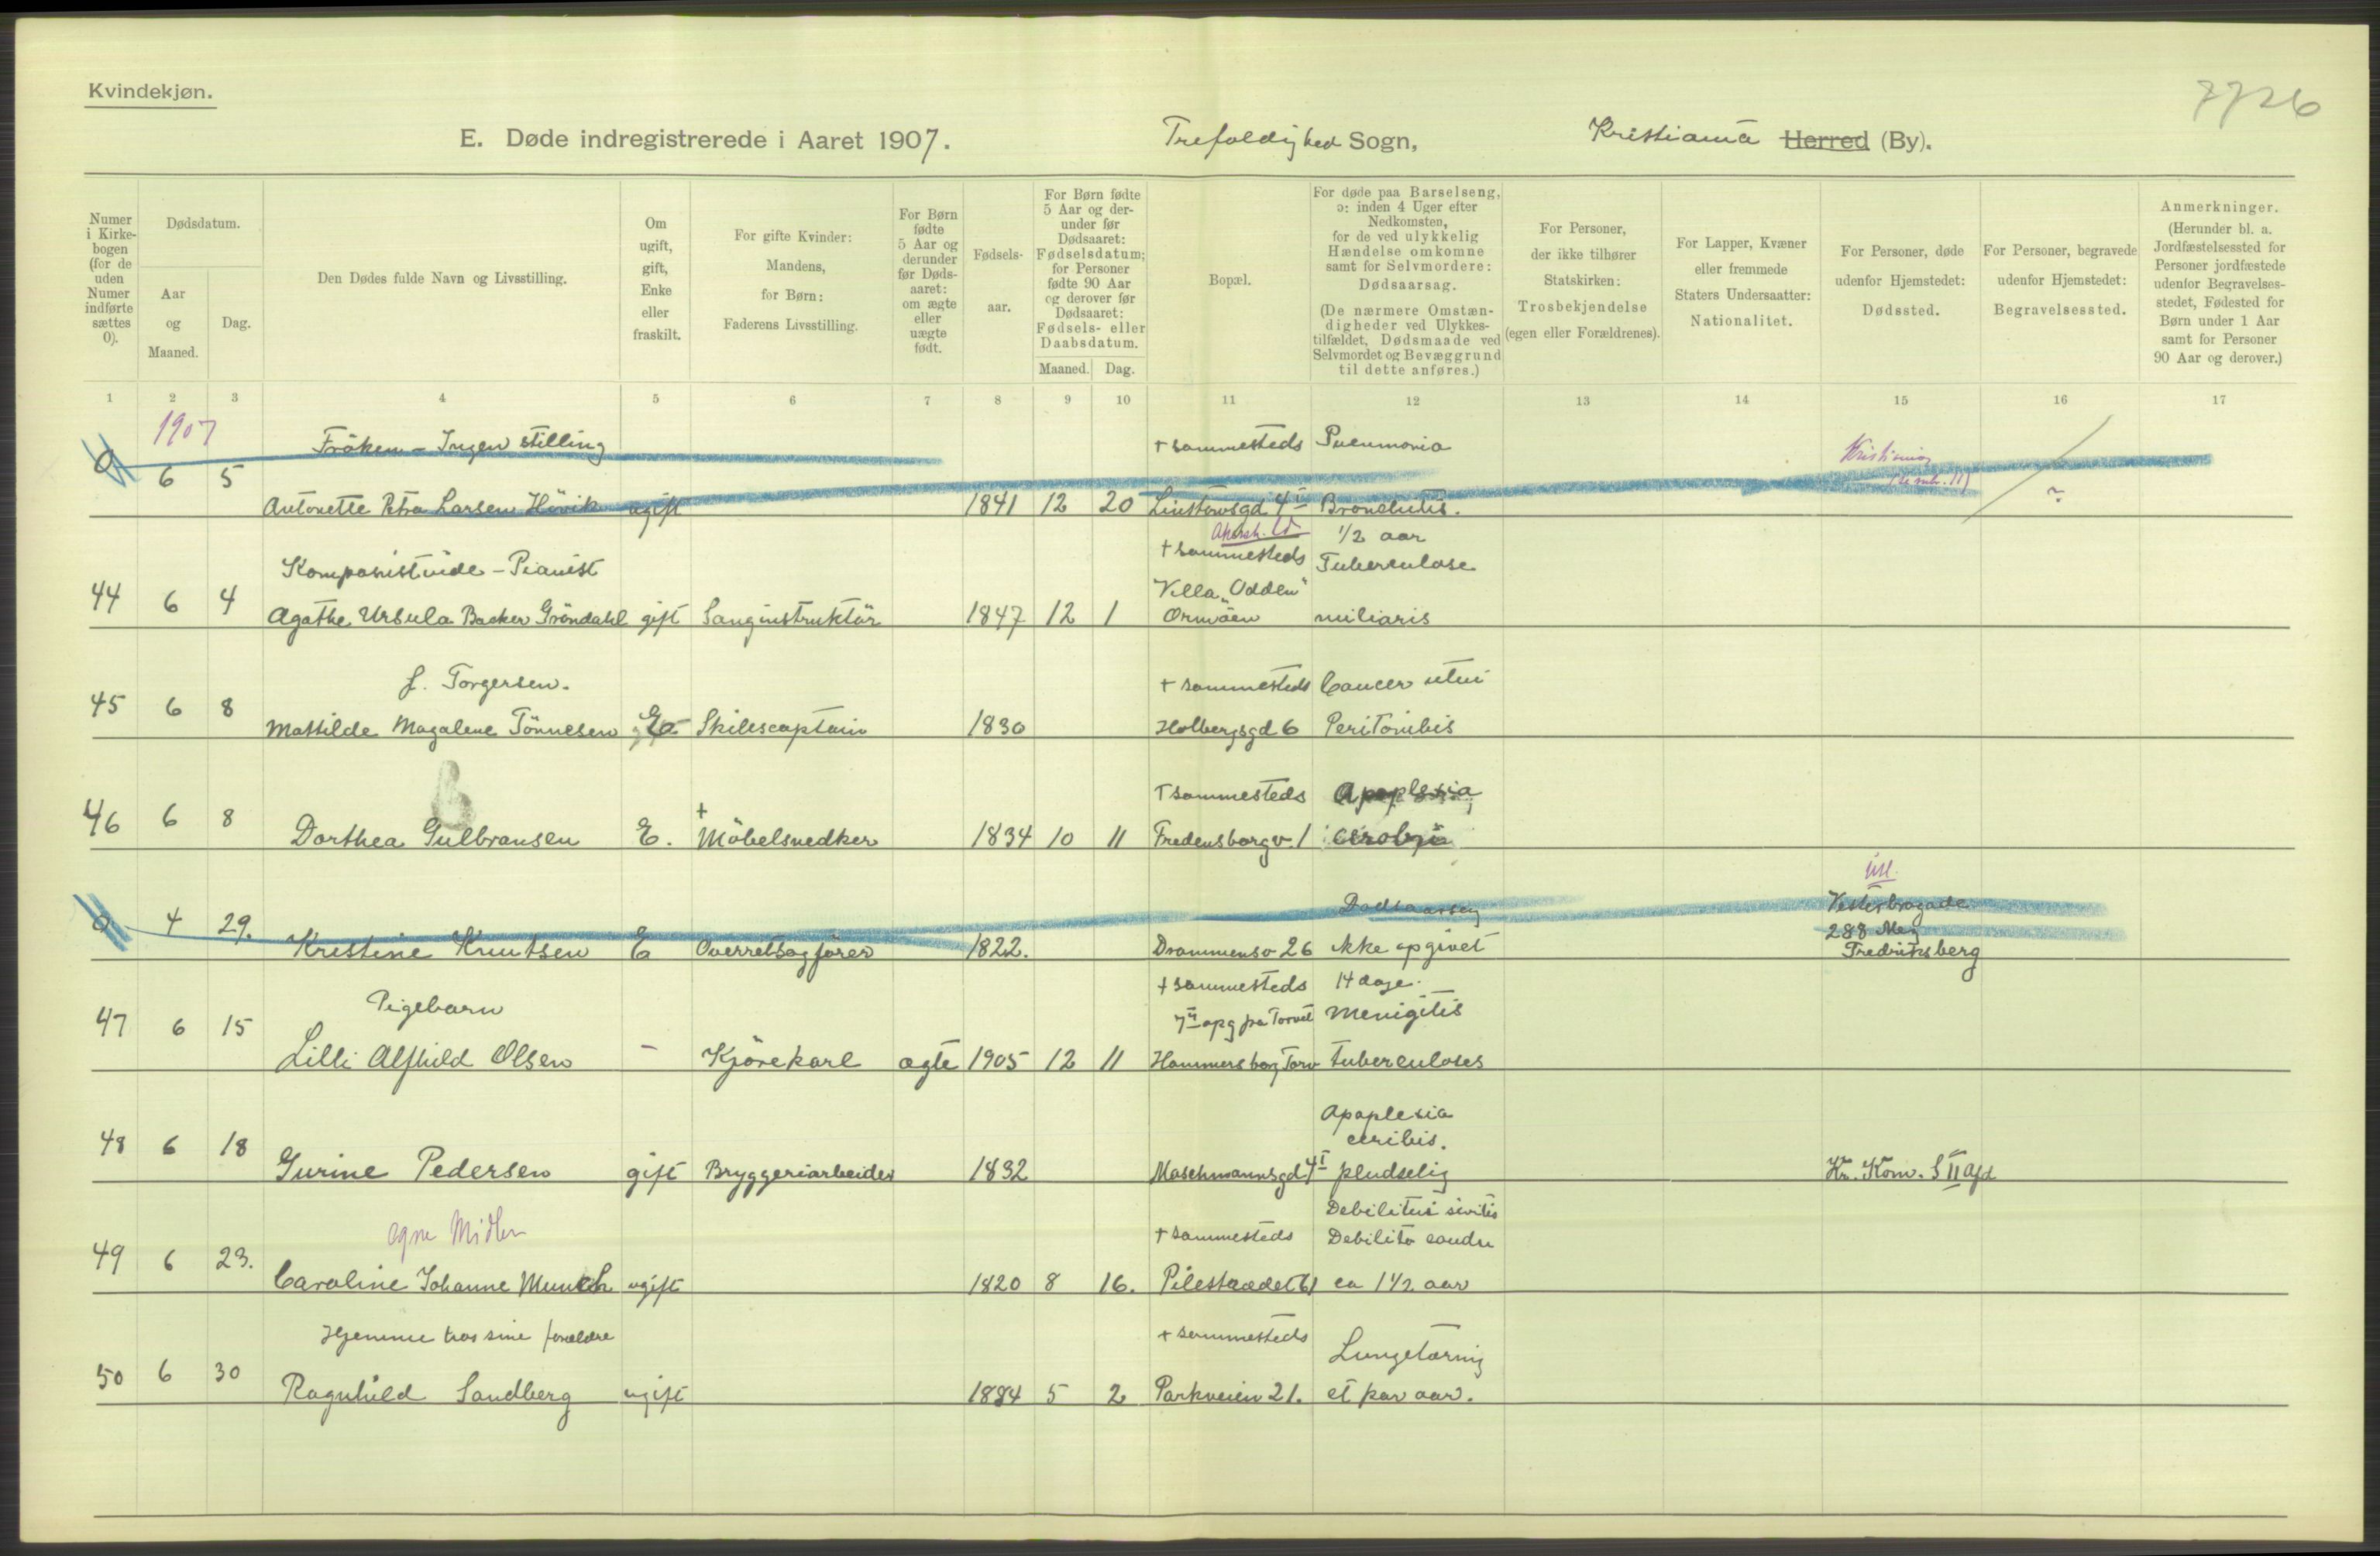 Kvindekjøn.
7726
E. Døde indregistrerede i Aaret 1907. Trefoldighed Sogn, Kristiania Herred (By).
Numer i Kirkebogen (for de uden Numer indførte sættes 0).
Dødsdatum.
Aar og Maaned.
Dag.
Den Dødes fulde Navn og Livsstilling.
Om ugift, gift, Enke eller fraskilt.
For gifte Kvinder: Mandens, for Børn: Faderens Livsstilling.
For Børn fødte 5 Aar og derunder før Dødsaaret: om ægte eller uægte født.
Fødselsaar.
For Børn fødte 5 Aar og derunder før Dødsaaret: Fødselsdatum; for Personer fødte 90 Aar og derover før Dødsaaret: Fødsels- eller Daabsdatum.
Maaned. Dag.
Bopæl.
For døde paa Barselseng, ɔ: inden 4 Uger efter Nedkomsten, for de ved ulykkelig Hændelse omkomne samt for Selvmordere: Dødsaarsag.
(De nærmere Omstændigheder ved Ulykkestilfældet, Dødsmaade ved Selvmordet og Bevæggrund til dette anføres.)
For Personer, der ikke tilhører Statskirken: Trosbekjendelse (egen eller Forældrenes).
For Lapper, Kvæner eller fremmede Staters Undersaatter: Nationalitet.
For Personer, døde udenfor Hjemstedet: Dødssted.
For Personer, begravede udenfor Hjemstedet: Begravelsessted.
Anmerkninger. (Herunder bl. a. Jordfæstelsessted for Personer jordfæstede udenfor Begravelsesstedet, Fødested for Børn under 1 Aar samt for Personer 90 Aar og derover.)
1 2 3 4 5 6 7 8 9 10 11 12 13 14 15 16 17
1907
Frøken - Ingen stilling + sammesteds Pneumonia Kristiania
0 6 5 Antonette Petra Larsen Hövik ugift 1841 12 20 Linstowsgd 4 I Bronchitis. ?
Akersh. 1/2 aar
Komponistinde - Pianist + sammesteds Tuberculose
Villa "Odden"
44 6 4 Agathe Ursula Backer Gröndahl gift Sanginstruktör 1847 12 1 Ormöen miliaris
f. Torgersen. + sammesteds Cancer uteri
45 6 8 Mathilde Magalene Tönnesen E Skibscaptain 1830 Holbergsgd 6 Peritonitis
+ sammesteds Apoplexia
46 6 8 Dorthea Gulbransen E. + Möbelsnedker 1834 10 11 Fredensborgv. 1
Dødsaarsag Vesterbrogade
0 4 29. Kristine Knutsen E Overretsagförer 1822. Drammensv 26 ikke opgivet 288 Fredriksberg
+ sammesteds 14 dage.
Pigebarn opg fra Torvet Menigitis
47 6 15 Lilli Alfhild Olsen - Kjörekarl ægte 1905 12 11 Hammersborg Torv tuberculoses
Apoplexia
ceribis.
48 6 18 Gurine Pedersen gift Bryggeriarbeider 1832 Maschmannsgd 4 I pludselig Kr. Kom. S II Afd
Egne Midler + sammesteds Debilito cordis
49 6 23. Caroline Johanne Munch ugift 1820 8 16. Pilestrædet 61 ca 1 1/2 aar
Hjemme hos sine forældre + sammesteds Lungetæring
50 6 30 Ragnhild Sandberg ugift 1884 5 2 Parkveien 21. et par aar.